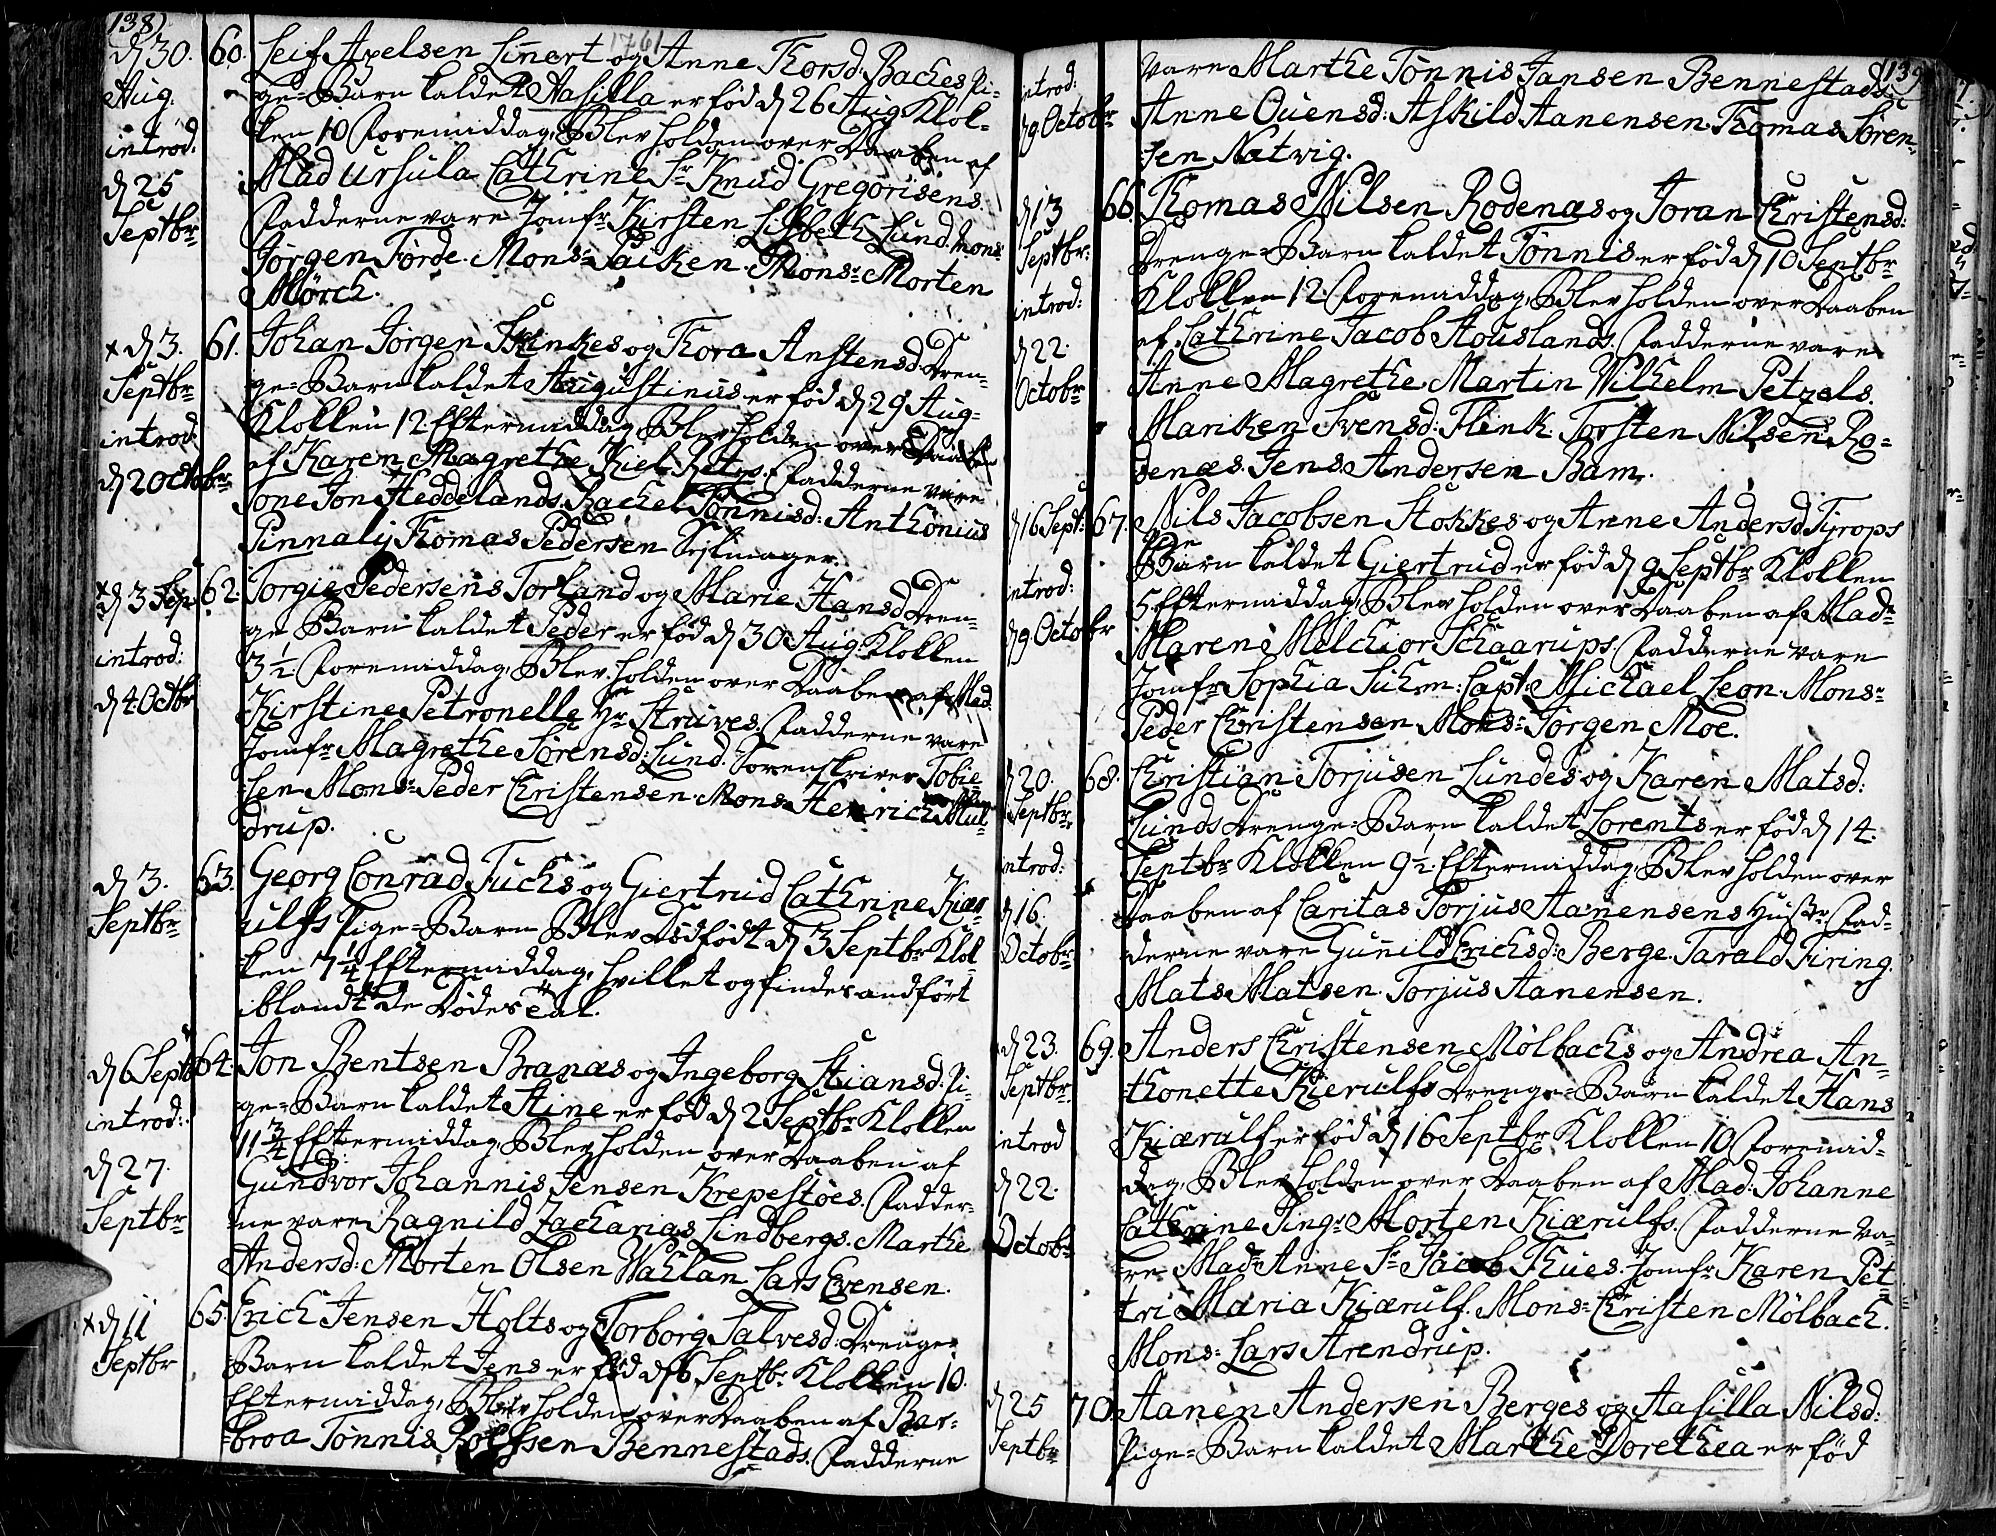 138)
1761
d 30.
Aug.
introd:
d 25
Septbr
60. Leif Axelsen Linert og Anne Thorsd: Baches Pi-
ge=Barn kaldet Aasilla er fød d 26 Aug. Klok-
ken 10 Formiddag, Blev holden over Daaben af
Mad Ursula Cathrine Sr Knud Gregorisens.
Fadderne vare Jomfr Kirsten Lisbeth Lund. Mons
Jørgen Förde. Mons: Paiken. Mons: Morten
Mörch.
x d 3.
Septbr
introd:
d 2 Octobr
61. Johan Jørgen Skinkes og Thora Anstensd: Dren-
ge=Barn kaldet Augustinus er fød d 29 Aug:
Klokken 12 Eftermiddag, Blev holden over Daaben
af Karen Magrethe Kield. Fadderne vare
Tone Jon Heddelands. Rachel Tönnisd: Anthonius
Pinnaly Thomas Pedersen Sejlmager.
x d 3 Sep
introd:
d 4 Octbr
62. Torgie Pedersens Torland og Marie Hansd: Dren-
ge Barn kaldet Peder er fød d 30 Aug. Klokken
3 1/2 Foremiddag, Blev holden over Daaben af Mad
Kirstine Petronelle Hr Struves. Fadderne vare
Jomfr Magrethe Sörensd: Lund. Sorenskriver Tobie
sen Mons: Peder Christensen. Mons: Henrich Mul-
drup.
d 3.
Septbr
63. Georg Conrad Fuchs og Giertrud Cathrine Kiær-
ulfs Pige=Barn Blev Dødfødt d 3 Septbr Klok-
ken 7 1/4 Eftermiddag, hvillet og findes andført
iblandt de Dödes Tal.
d 6 Septb
introd:
d 27.
Septbr
64. Jon Bentsen Branæs og Ingeborg Stiansd: Pi-
ge=Barn kaldet Stine er fød d 2 Septbr Klokken
11 3/4 Eftermiddag, Blev holden over Daaben af
Gundvor Johannis Jensen Krepestöes. Fadder-
ne vare Ragnild Zacharias Lindbergs. Marthe
Andersd: Morten Olsen Wahlan Lars Evensen.
x d 11
Septbr
65. Erich Jensen Holts og Torborg Salvesd: Drenge-
Barn kaldet Jens er fød d 6 Septbr Klokken 10.
Eftermiddag, Blev holden over Daaben af Bar-
broa Tönnis Rolfsen Bennestads. Fadderne
139
introd:
d 9 Octobr
vare Marthe Tönnis Jansen Bennestads.
Anne Ouensd: Askild Aanensen. Thomas Sören-
sen Natvig.
d 13
Septbr:
introd:
d 22.
Octobr
66. Thomas Nilsen Rodenæs og Joran Christensd:
Drenge=Barn kaldet Tönnis er fød d 10 Septbr
Klokken 12 Foremiddag, Blev holden over Daaben
af Cathrine Jacob Stouslands. Fadderne vare
Anne Magrethe Martin Vilhelm Petzels.
Mariken Svensd: Flink. Torsten Nilsen Ro-
denæs. Jens Andersen Bam.
d 16 Sept:
introd:
d 9 Octobr
67. Nils Jacobsen Stokkes og Anne Andersd Tyrops
Pige
Barn kaldet Giertrud er fød d 9 Septbr Klokken
5 Eftermiddag, Blev holden over Daaben af Mad
Maren Melchior Schaarups. Fadderne vare
Jomfr Sophia Suhm. Capt: Michael Leon. Mons:
Peder Christensen Mons: Jörgen Moe.
d 20.
Septbr
introd:
d 16.
Octobr
68. Christian Torjusen Lundes og Karen Matsd:
Lunds Drenge=Barn kaldet Lorents er fød d 14.
Septbr Klokken 9 1/2. Eftermiddag, Blev holden over
Daaben af Caritas Torjus Aanensens Hustr. Fad-
derne vare Gunild Erichsd: Berge. Tarald Firing.
Mats Matsen. Torjus Aanensen.
d 23.
Septbr
introd
d 22.
Octobr
69. Anders Christensen Mölbachs og Andrea An-
thonette Kierulfs Drenge=Barn kaldet Hans
Kiærulf er fød d 16 Septbr Klokken 10 Foremid-
dag, Blev holden over Daaben af Mad: Johanne
Cathrine Sing: Morten Kiærulfs. Fadderne va-
re Mad: Anne Sr Jacob Thues. Jomfr Karen Pet
tri Maria Kiærulf. Mons: Christen Mölbach.
Mons: Lars Arendrup.
d 25
Septbr
70. Aanen Andersen Berges og Aasilla Nilsd:
Pige=Barn kaldet Marthe Dorethea er fød